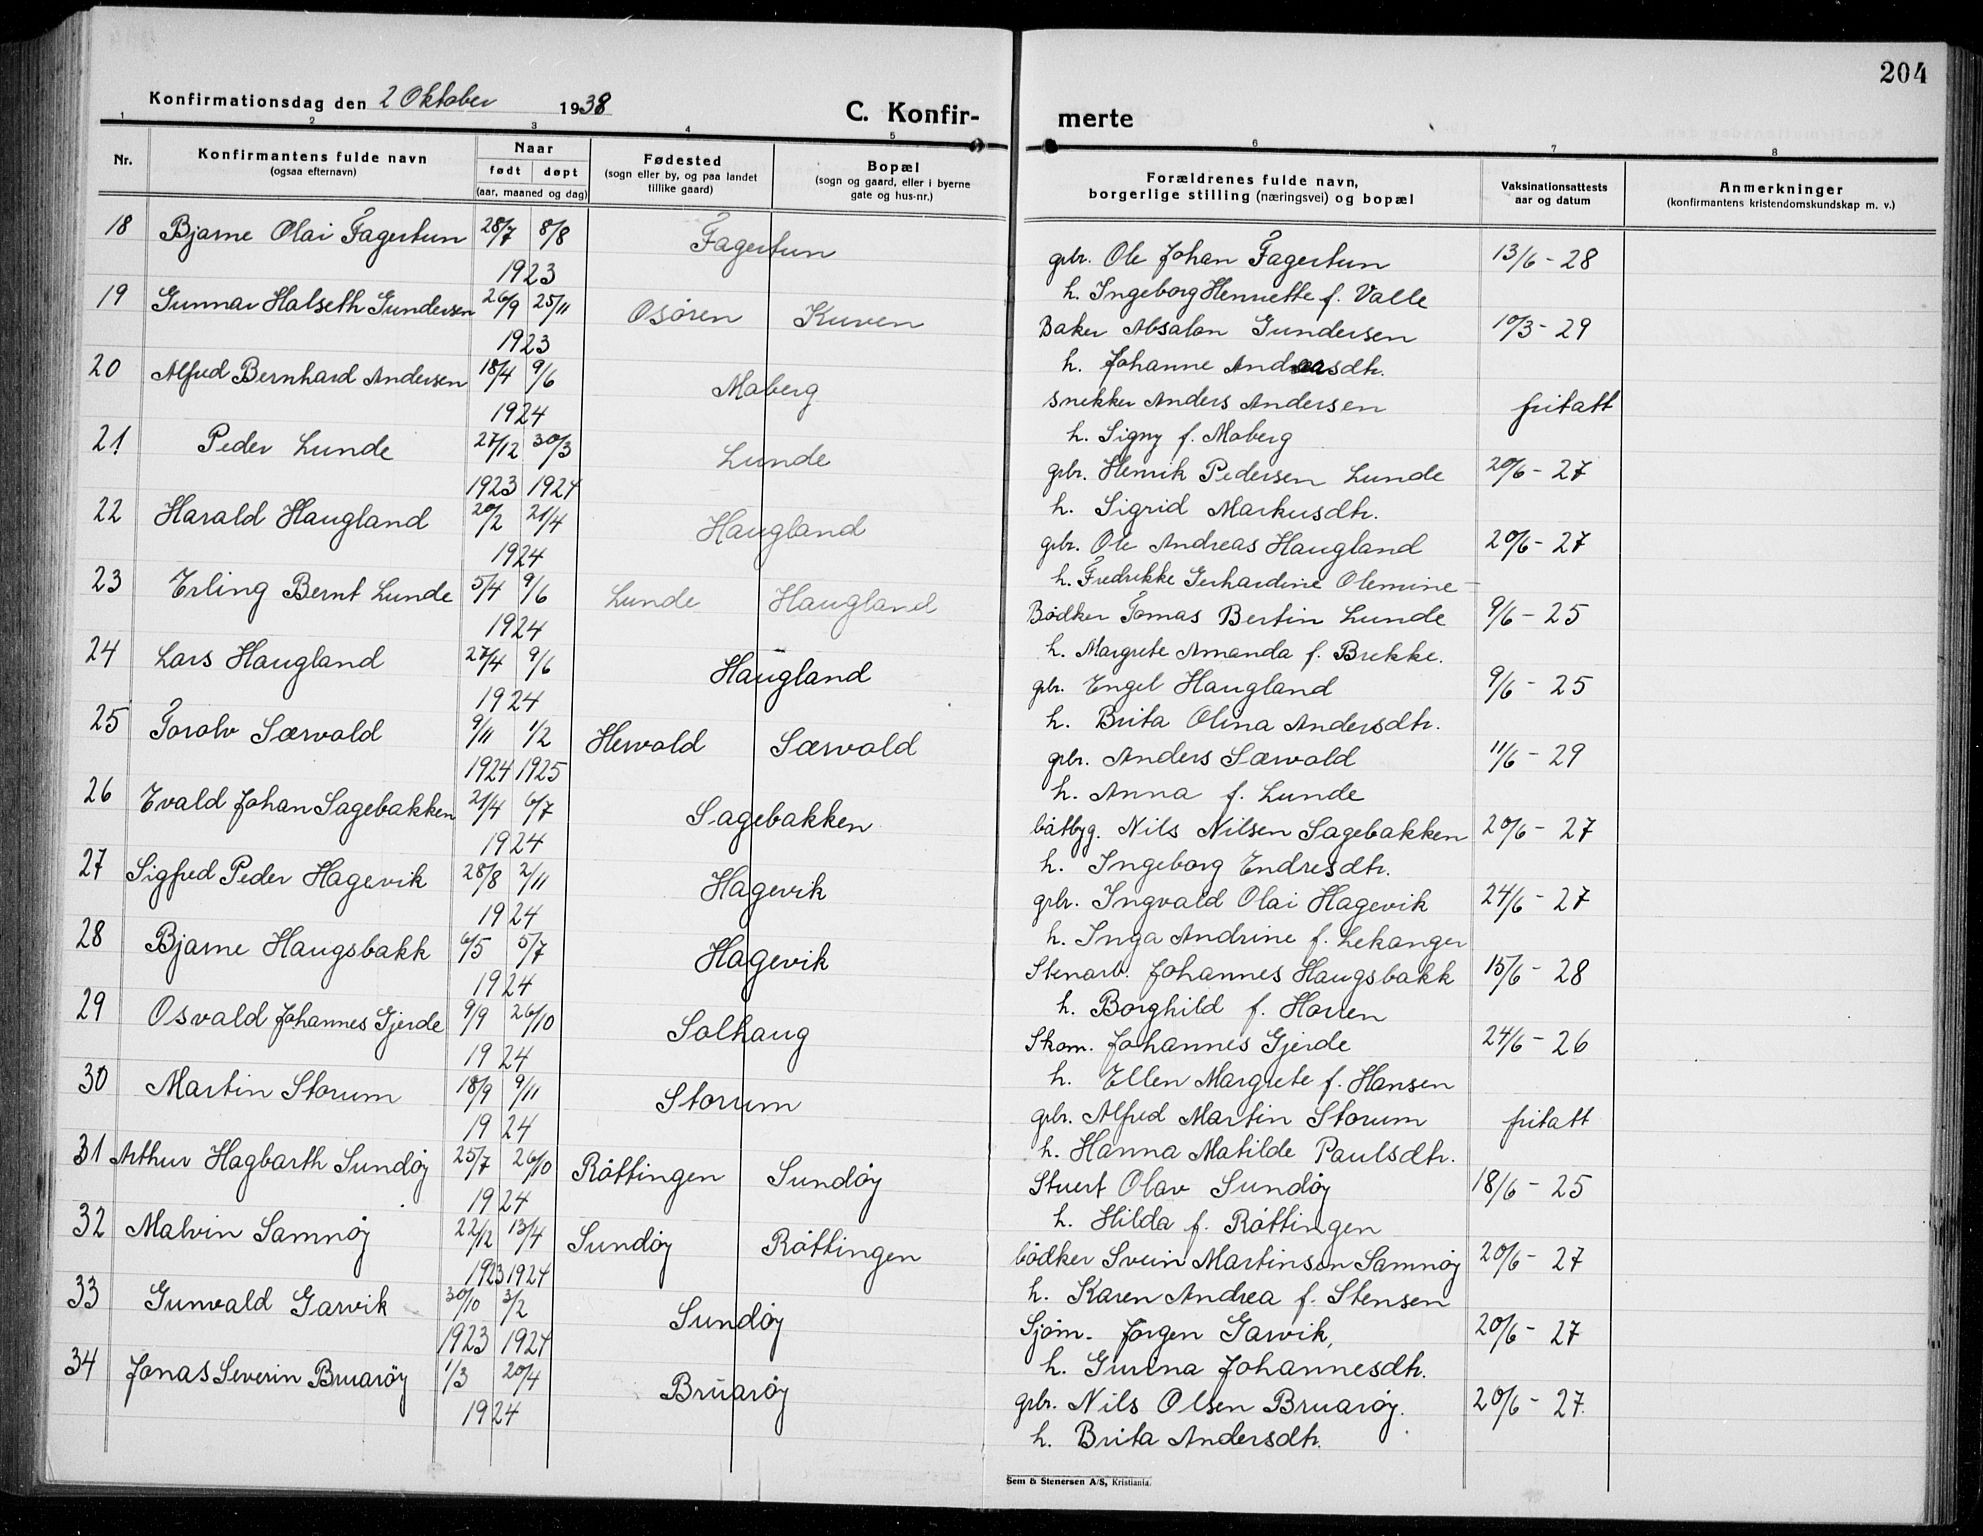 204
Konfirmationsdag den 2 Oktober 1938
C. Konfir- merte
1 2 3 4 5 6 7 8
Nr.
Konfirmantens fulde navn
(ogsaa efternavn)
Naar
født døpt
(aar, maaned og dag)
Fødested
(sogn eller by, og paa landet
tillike gaard)
Bopæl
(sogn og gaard, eller i byerne
gate og hus-nr.)
Forældrenes fulde navn,
borgerlige stilling (næringsvei) og bopæl
Vaksinationsattests
aar og datum
Anmerkninger
(konfirmantens kristendomskundskap m. v.)
18 Bjarne Olai Fagertun 28/7 8/8 Fagertun grbr. Ole Johan Fagertun 13/6 - 28
1923 h. Ingeborg Henriette f. Valle
19 Gunnar Halseth Gundersen 26/9 25/11 Osøren Kuven Baker Absalon Gundersen 10/3 - 29
1923 h. Johanne Andreasdtr.
20 Alfred Bernhard Andersen 18/4 9/6 Moberg snekker Anders Andersen fritatt
1924 h. Signy f. Moberg
21 Peder Lunde 27/12 30/3 Lunde grbr. Henrik Pedersen Lunde 20/6 - 27
1923 1924 h. Sigrid Markusdtr.
22 Harald Haugland 20/2 21/4 Haugland grbr. Ole Andreas Haugland 20/6 - 27
1924 h. Fredrikke Gerhardine Olemine
23 Erling Bernt Lunde 5/4 9/6 Lunde Haugland Bødker Tomas Bertin Lunde 9/6 - 25
1924 h. Margrete Amanda f. Brekke.
24 Lars Haugland 27/4 9/6 Haugland grbr. Engel Haugland 9/6 - 25
1924 h. Brita Olina Andersdtr.
25 Torolv Særvold 9/11 1/2 Hervold Særvold grbr. Anders Særvold 11/6 - 29
1924 1925 h. Anna f. Lunde
26 Evald Johan Sagebakken 21/4 6/7 Sagebakken båtbyg. Nils Nilsen Sagebakken 20/6 - 27
1924 h. Ingeborg Endresdtr.
27 Sigfred Peder Hagevik 28/8 2/11 Hagevik grbr. Ingvald Olai Hagevik 24/6 - 27
1924 h. Inga Andrine f. Lekanger
28 Bjarne Haugsbakk 6/5 5/7 Hagevik Stenarb. Johannes Haugsbakk 15/6 - 28
1924 h. Borghild f. Hovien
29 Osvald Johannes Gjerde 9/9 26/10 Solhaug Skom. Johannes Gjerde 24/6 - 26
1924 h. Ellen Margrete f. Hansen
30 Martin Storum 18/9 9/11 Storum grbr. Alfred Martin Storum fritatt
1924 h. Hanna Matilde Paulsdtr.
31 Arthur Hagbarth Sundøy 25/7 26/10 Røttingen Sundøy Stuert Olav Sundøy 18/6 - 25
1924 h. Hilda f. Røttingen
32 Malvin Samnøy 22/12 13/4 Sundøy Røttingen bødker Svein Martinsen Samnøy 20/6 - 27
1923 1924 h. Karen Andrea f. Stensen
33 Gunvald Garvik 30/10 3/2 Sundøy Sjøm. Jørgen Garvik, 20/6 - 27
1923 1924 h. Gurina Johannesdtr.
34 Jonas Severin Bruarøy 1/3 20/4 Bruarøy grbr. Nils Olsen Bruarøy. 20/6 - 27.
1924 h. Brita Andersdtr.
Sem & Stenersen A/S, Kristiania.